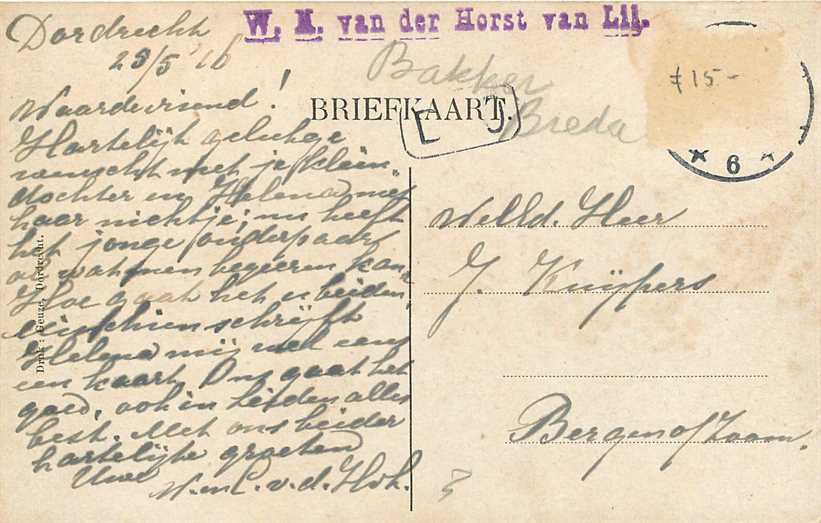 Dordrecht
25/5 '16
W. M. van der Horst van Lil.
Bakker
Breda
BRIEFKAART.
£ 15-
6
Waarde vriend!
Hartelijk geluk ge
wenscht met je klein
dochter en Helena met
haar nichtje, nu heeft
het jonge ouderpaar
al wat men begeeren kan
Hoe gaat het u beiden,
misschien schrijft
Helena mij wel eens
een kaart. Ons gaat het
goed, ook in Leiden alles
best. Met ons beider
hartelijke groeten
Uwe
v.d.
Druk: Geuze, Dordrecht.
WelEd. Heer
J. Kuijpers
Bergen of Zoom.